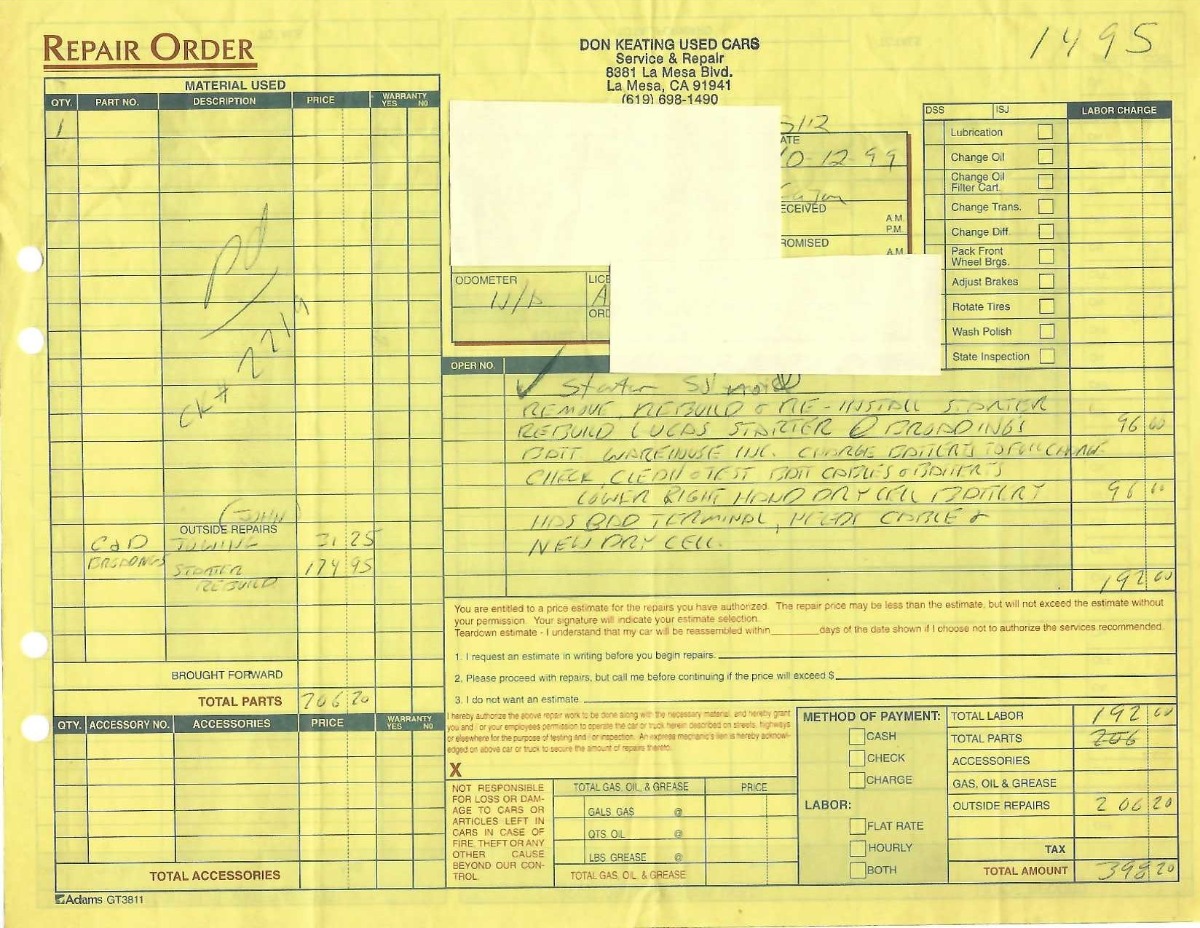 REPAIR ORDER
DON KEATING USED CARS
Service & Repair
8381 La Mesa Blvd.
La Mesa, CA 91941
(619) 698-1490
1495
MATERIAL USED
QTY. PART NO. DESCRIPTION PRICE WARRANTY YES NO
1
pd
CK# 2219
(JOHN)
OUTSIDE REPAIRS
C&D TOWING 31 25
BROADINGS STARTER 174 95
REBUILD
BROUGHT FORWARD
TOTAL PARTS 206 20
QTY. ACCESSORY NO. ACCESSORIES PRICE WARRANTY YES NO
TOTAL ACCESSORIES
Adams GT3811
ATE
10-12-99
ECEIVED
A.M.
P.M.
ROMISED
A.M
ODOMETER
N/A
LICE
A
ORD
DSS ISJ LABOR CHARGE
Lubrication
Change Oil
Change Oil
Filter Cart.
Change Trans.
Change Diff.
Pack Front
Wheel Brgs.
Adjust Brakes
Rotate Tires
Wash Polish
State Inspection
OPER NO.
✓ Starter
REMOVE, REBUILD & RE-INSTALL STARTER
REBUILD LUCAS STARTER @ BROADINGS 96 00
BATT WAREHOUSE INC. CHARGE BATTERYS TO FULL CHARGE
CHECK, CLEAN & TEST BATT CABLES & BATTERYS
LOWER RIGHT HAND DRY CELL BATTERY 96 00
HAS BAD TERMINAL, NEEDS CABLE &
NEW DRY CELL.
192 00
You are entitled to a price estimate for the repairs you have authorized. The repair price may be less than the estimate, but will not exceed the estimate without
your permission. Your signature will indicate your estimate selection.
Teardown estimate - I understand that my car will be reassembled within________days of the date shown if I choose not to authorize the services recommended.
1. I request an estimate in writing before you begin repairs.
2. Please proceed with repairs, but call me before continuing if the price will exceed $
3. I do not want an estimate.
I hereby authorize the above repair work to be done along with the necessary material, and hereby grant
you and / or your employees permission to operate the car or truck herein described on streets, highways
or elsewhere for the purpose of testing and / or inspection. An express mechanic's lien is hereby acknowl-
edged on above car or truck to secure the amount of repairs thereto.
X
NOT RESPONSIBLE
FOR LOSS OR DAM-
AGE TO CARS OR
ARTICLES LEFT IN
CARS IN CASE OF
FIRE, THEFT OR ANY
OTHER CAUSE
BEYOND OUR CON-
TROL.
TOTAL GAS, OIL, & GREASE PRICE
GALS. GAS @
QTS. OIL @
LBS. GREASE @
TOTAL GAS, OIL & GREASE
METHOD OF PAYMENT:
CASH
CHECK
CHARGE
LABOR:
FLAT RATE
HOURLY
BOTH
TOTAL LABOR 192 00
TOTAL PARTS 206
ACCESSORIES
GAS, OIL & GREASE
OUTSIDE REPAIRS 206 20
TAX
TOTAL AMOUNT 398 20